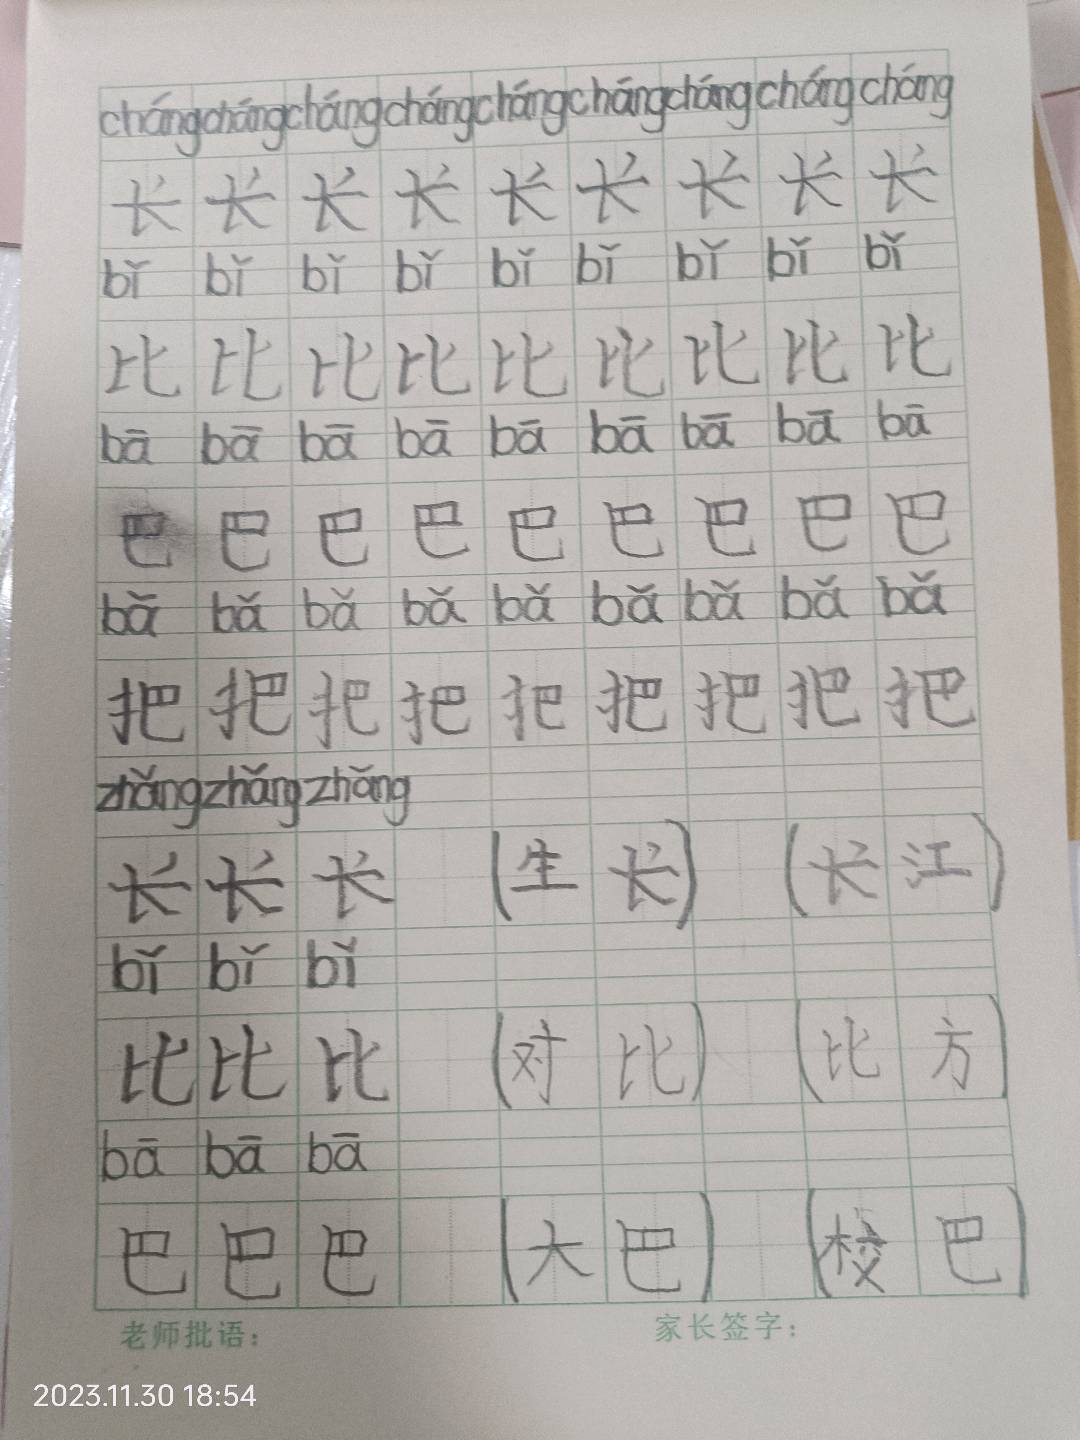 cháng cháng cháng cháng cháng cháng cháng cháng cháng
长 长 长 长 长 长 长 长 长
bǐ bǐ bǐ bǐ bǐ bǐ bǐ bǐ bǐ
比 比 比 比 比 比 比 比 比
bā bā bā bā bā bā bā bā bā
巴 巴 巴 巴 巴 巴 巴 巴 巴
bǎ bǎ bǎ bǎ bǎ bǎ bǎ bǎ bǎ
把 把 把 把 把 把 把 把 把
zhǎng zhǎng zhǎng
长 长 长 (生长) (长江)
bǐ bǐ bǐ
比 比 比 (对比) (比方)
bā bā bā
巴 巴 巴 (大巴) (校巴)
老师批语: 家长签字:
2023.11.30 18:54